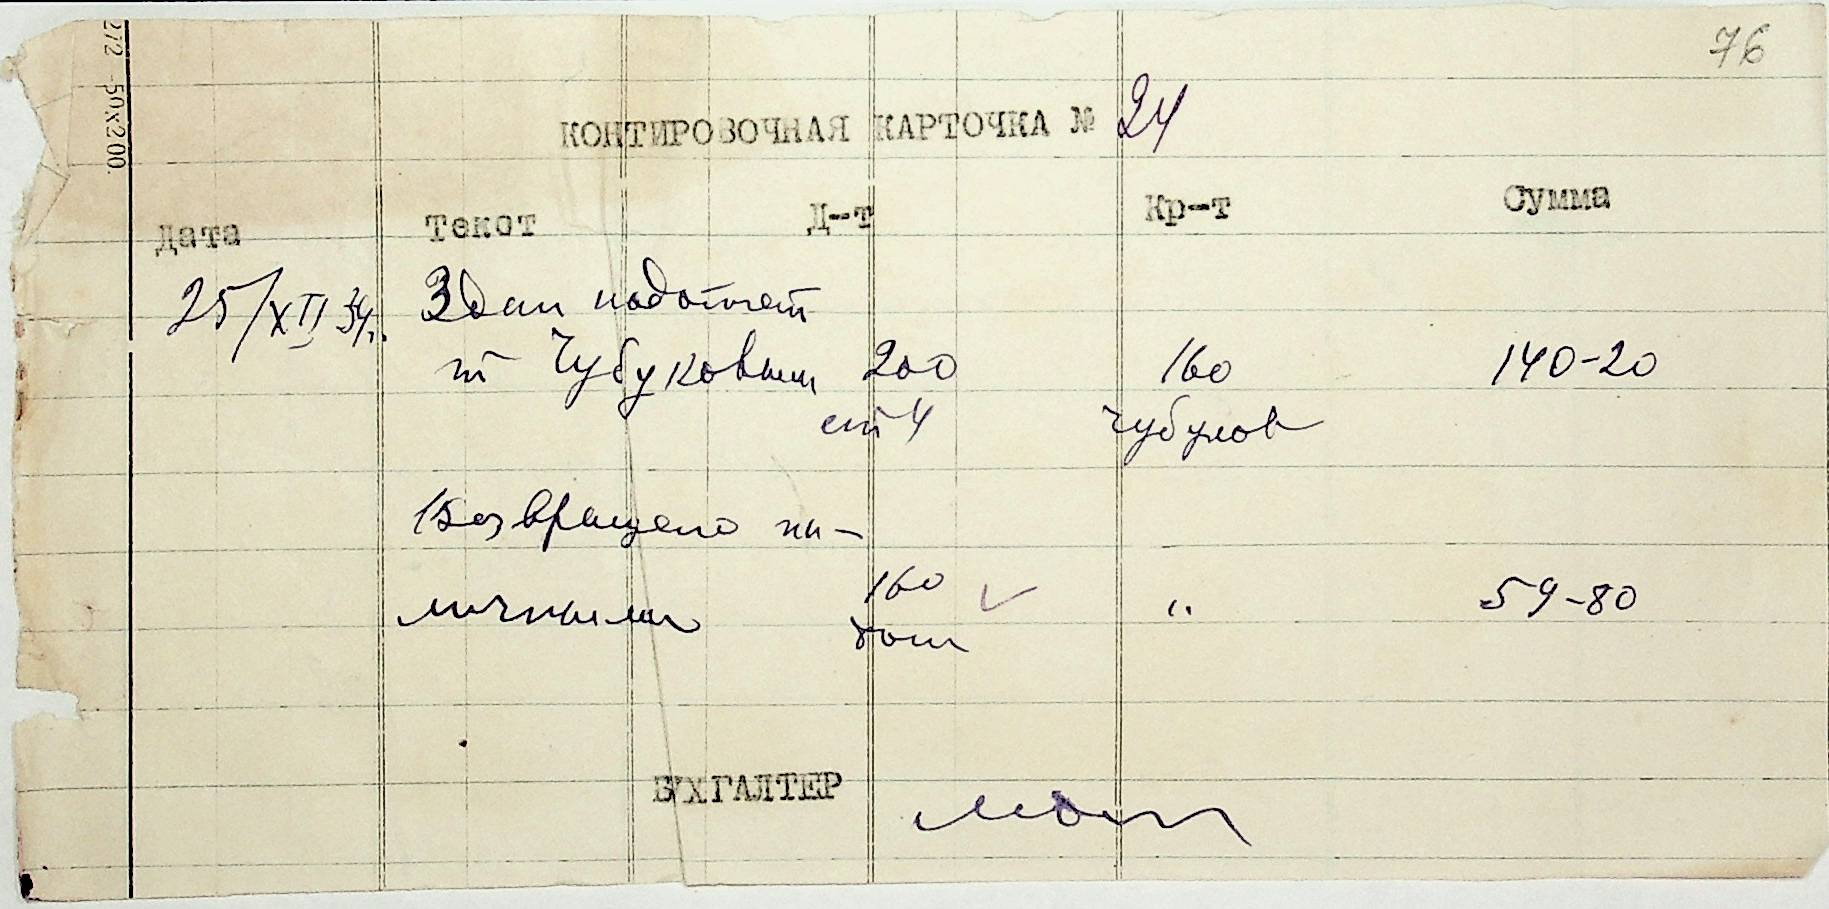 76
272 -50х200.
КОНТИРОВОЧНАЯ КАРТОЧКА № 24
Дата Текст Д-т Кр-т Сумма
25/XII 34г. Здан подотчет
Чубуковым 200 160 140-20
ст 4 Чубуков
Возвращено на-
личными 160 " 59-80
БУХГАЛТЕР